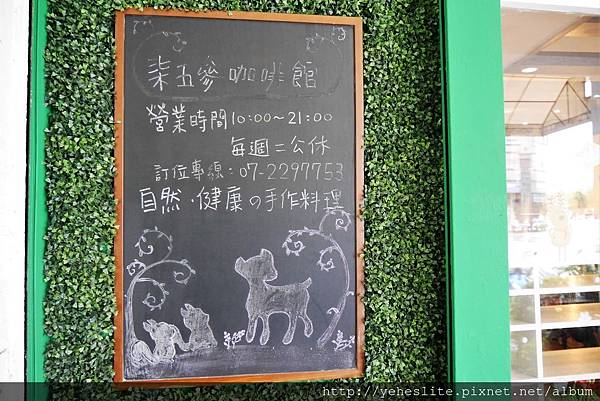 柒五參咖啡館
營業時間10:00~21:00
每週二公休
訂位專線:07-2297753
自然・健康の手作料理
http://yeheslite.pixnet.net/album